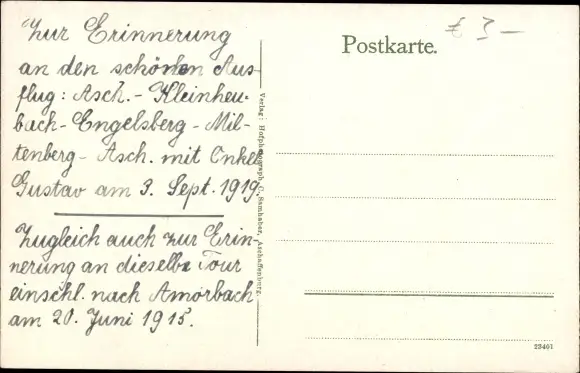 Zur Erinnerung
an den schönen Aus-
flug: Asch. - Kleinheu-
bach - Engelsberg - Mil-
tenberg - Asch. mit Onkel
Gustav am 3. Sept. 1919.
Zugleich auch zur Erin-
nerung an dieselbe Tour
einschl. nach Amorbach
am 20. Juni 1915.
Verlag: Hofphotograph C. Samhaber, Aschaffenburg.
£ 3 -
Postkarte.
23401